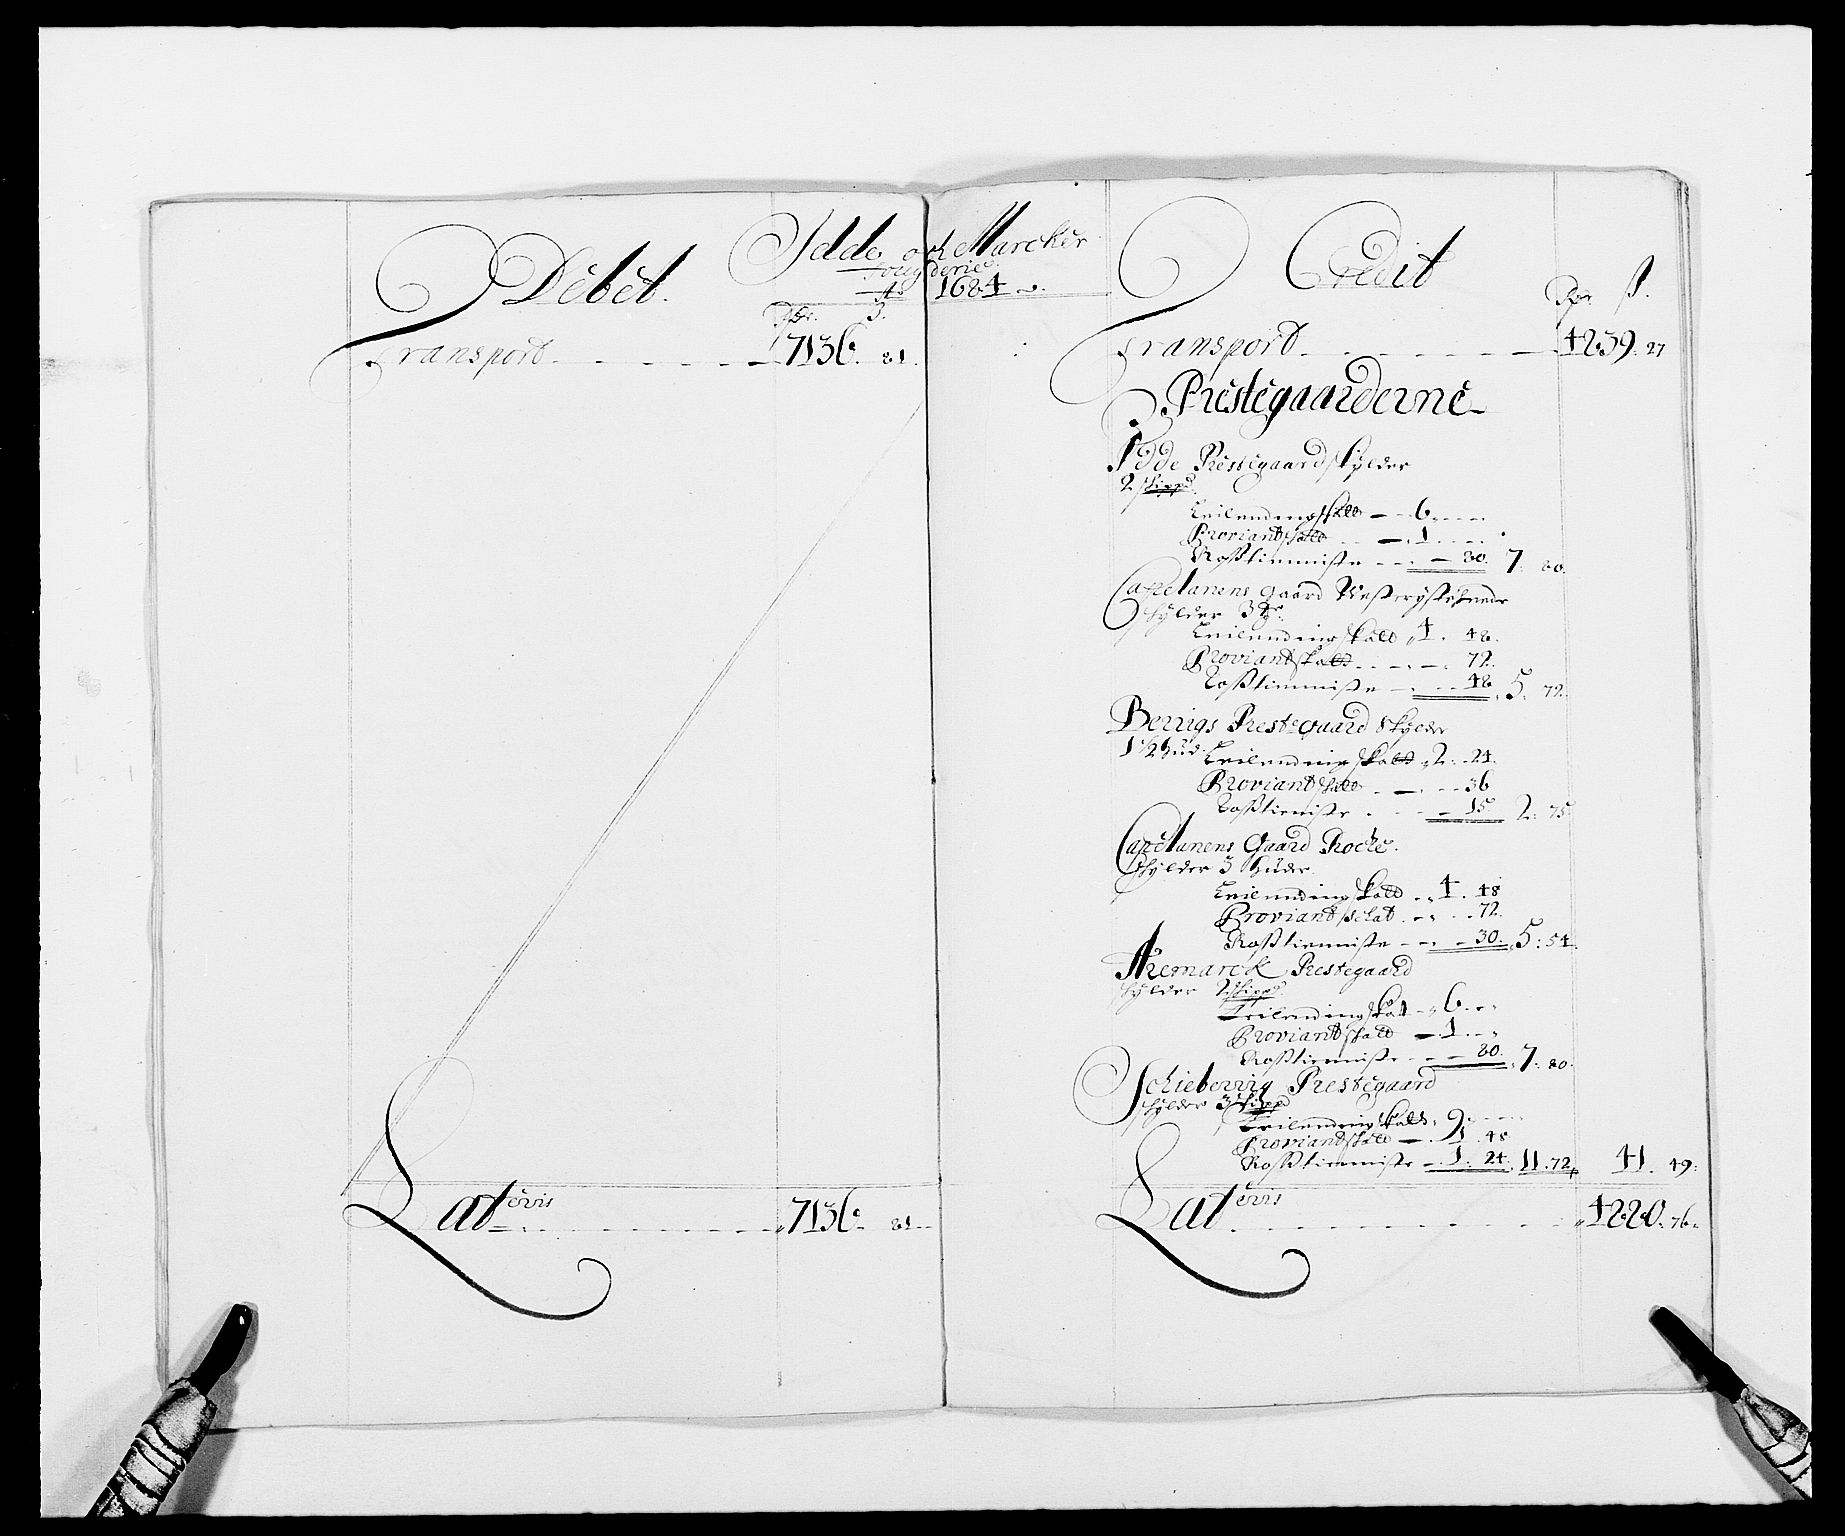 Debet.
Idde och Marcker
fougderie
Ao 1684
Rdr. ß.
Transport 7136. 81.
Latervis 7136. 81
Credit
Rdr. ß.
Transport 4239. 27
Prestegaarderne
Idde Prestegaard skylder
2 skippd.
Leilendingskatt 6.
Proviantskatt 1
Rosstienniste 80. 7. 80.
Capelanens gaard
skylder 3
Leilendingskatt 4. 48.
Proviantskatt 72.
Rosstienniste 48 5. 72.
Bergs Prestegaard Skylder
1 1/2 hud. Leilendingskatt 2. 24.
Proviantskatt 36
Rosstienniste 15 2. 75
Capelanens Gaard Rocke.
skylder 3 huder.
Leilendingskatt 4. 48
Proviantschat 72.
Rosstienniste 30. 5. 54.
Aremarck Prestegaard
skylder 2 skippd.
Leilendingskat 6.
Proviantskatt 1
Rosstienniste 80. 7. 80.
Schiebervig Prestegaard
skylder 3 skippd
Leilendingskatt 9.
Proviantskatt 1. 48
Rosstienniste 1. 24. 11. 72. 41. 49.
Latervis 4280. 76.